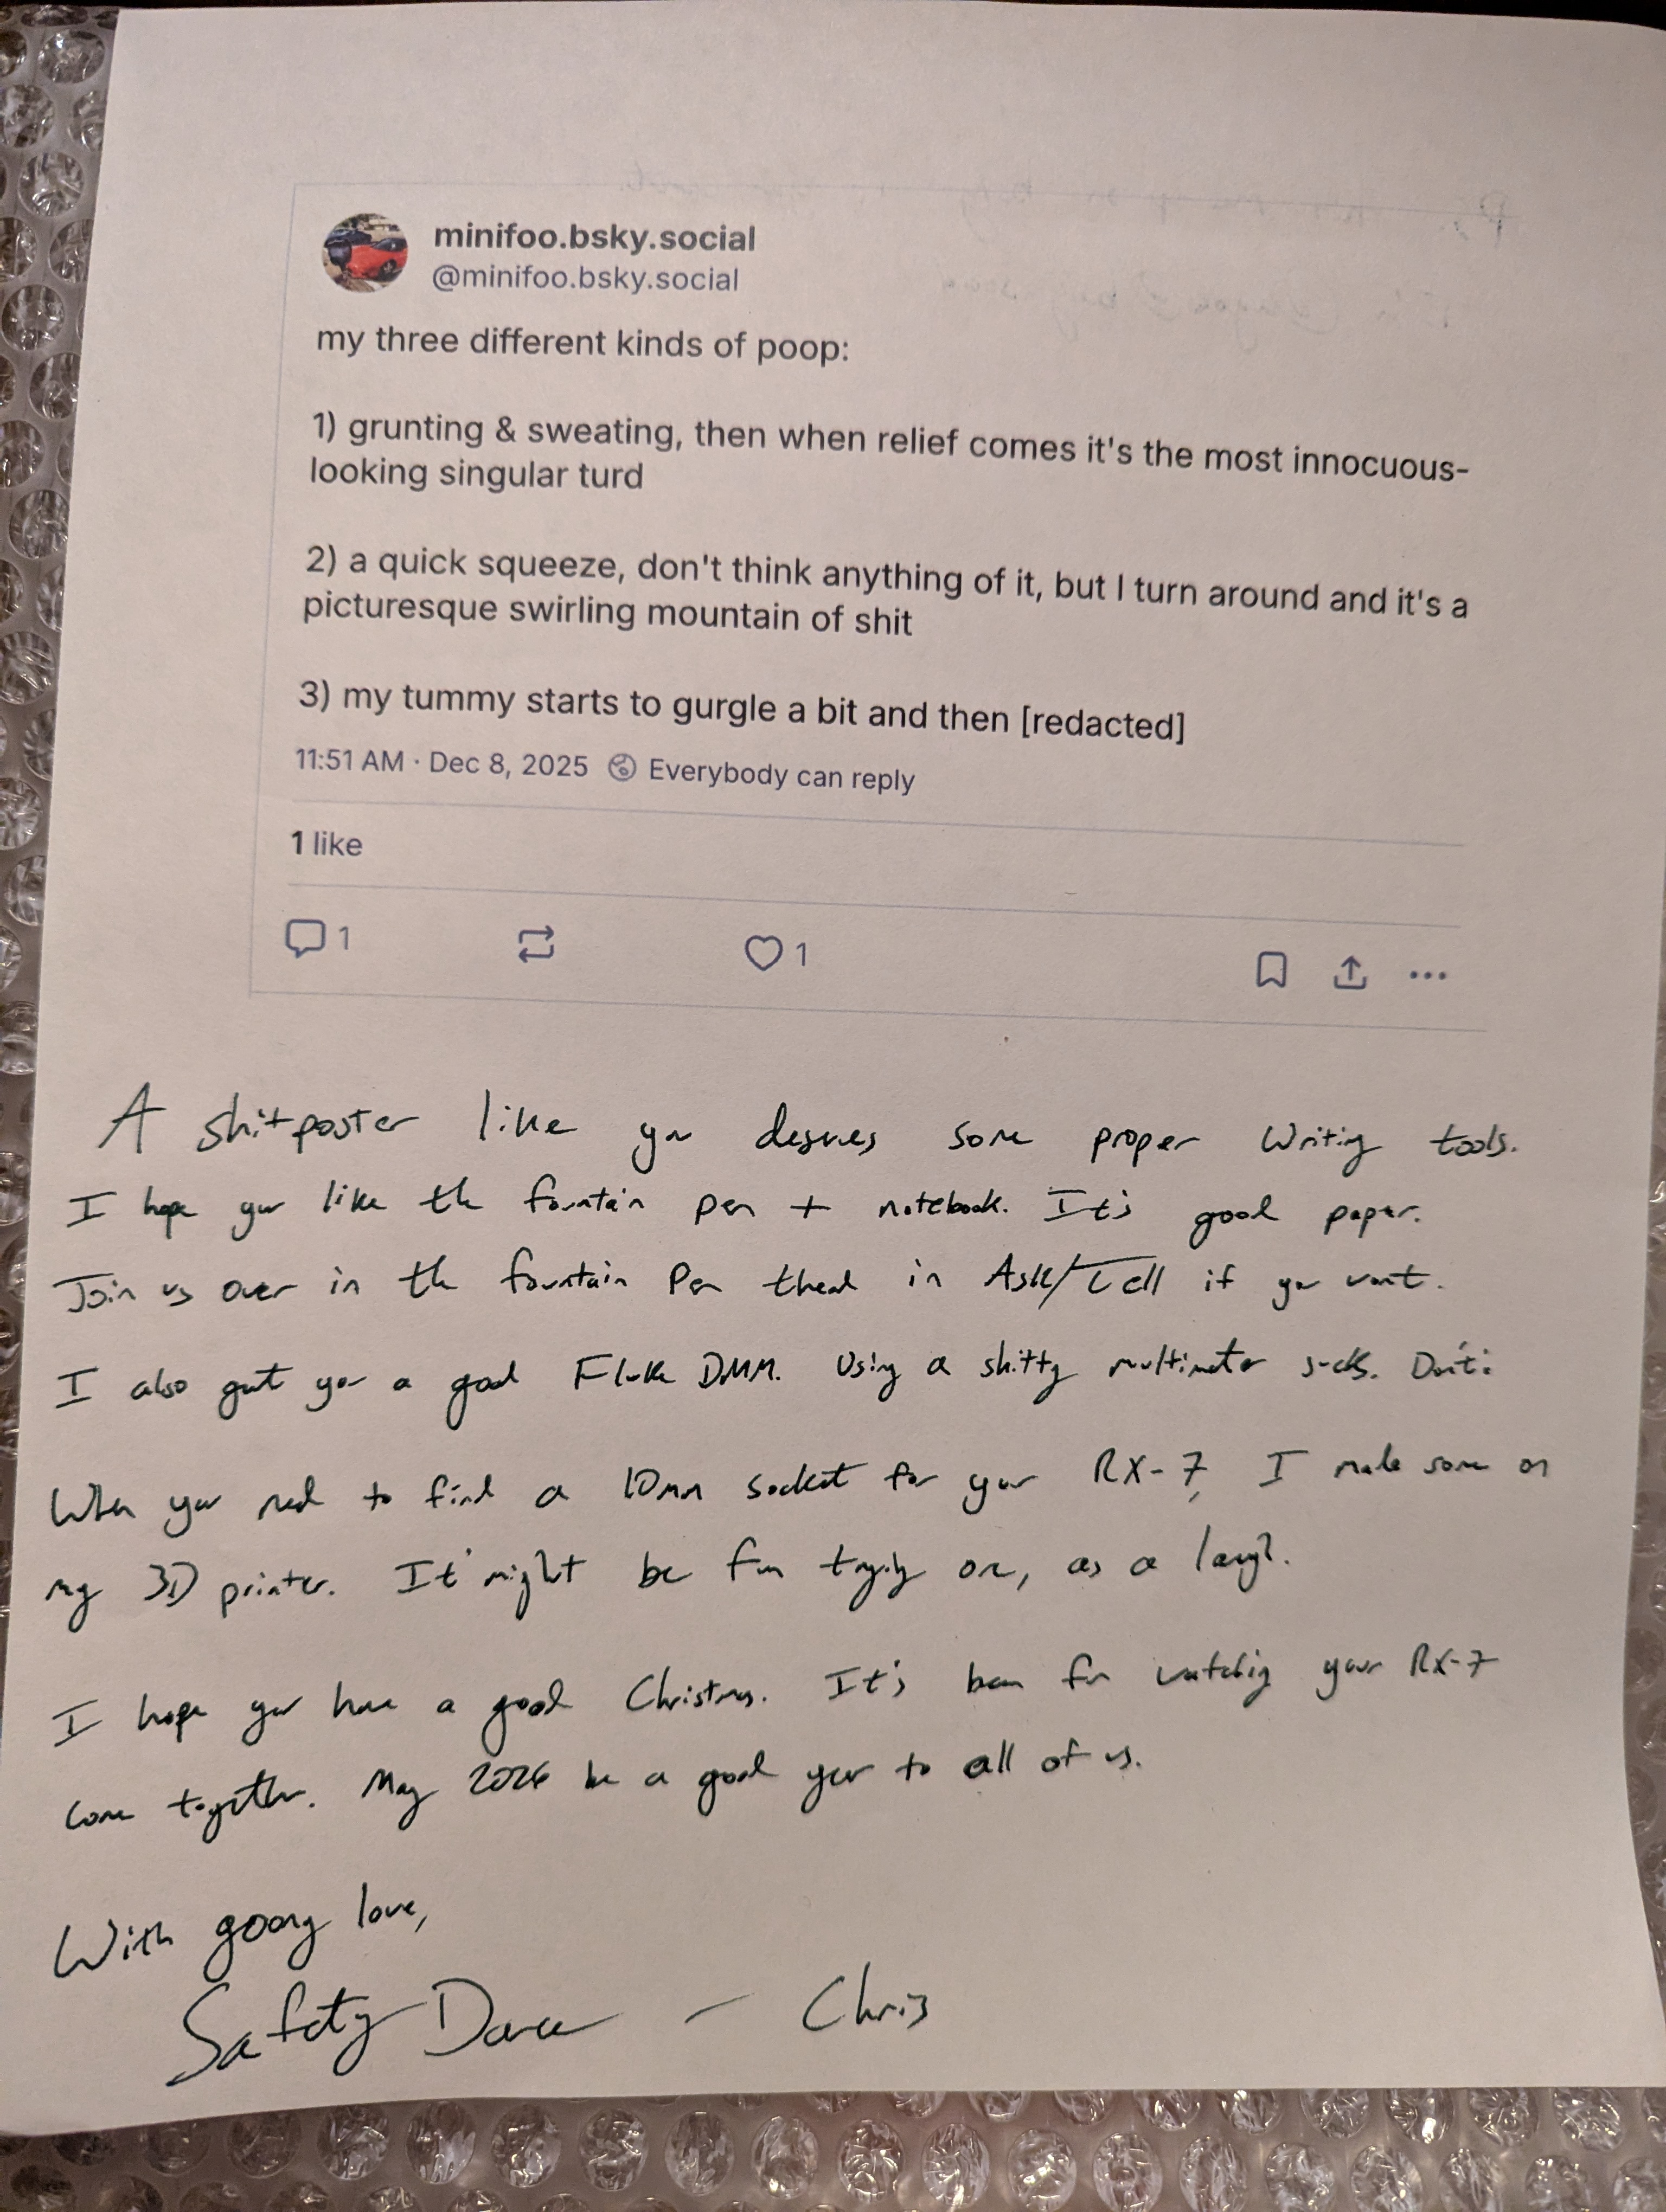 minifoo.bsky.social
@minifoo.bsky.social
my three different kinds of poop:
1) grunting & sweating, then when relief comes it's the most innocuous-
looking singular turd
2) a quick squeeze, don't think anything of it, but I turn around and it's a
picturesque swirling mountain of shit
3) my tummy starts to gurgle a bit and then [redacted]
11:51 AM · Dec 8, 2025 Everybody can reply
1 like
1 1
A shitposter like you deserves some proper writing tools.
I hope you like the fountain pen + notebook. It's good paper.
Join us over in the fountain pen thread in Ask/Tell if you want.
I also got you a good Fluke DMM. Using a shitty multimeter sucks. Don't!
When you need to find a 10mm socket for your RX-7, I made some on
my 3D printer. It might be fun trying one, as a laugh.
I hope you have a good Christmas. It's been fun watching your RX-7
come together. May 2026 be a good year to all of us.
With goony love,
Safety Dance - Chris